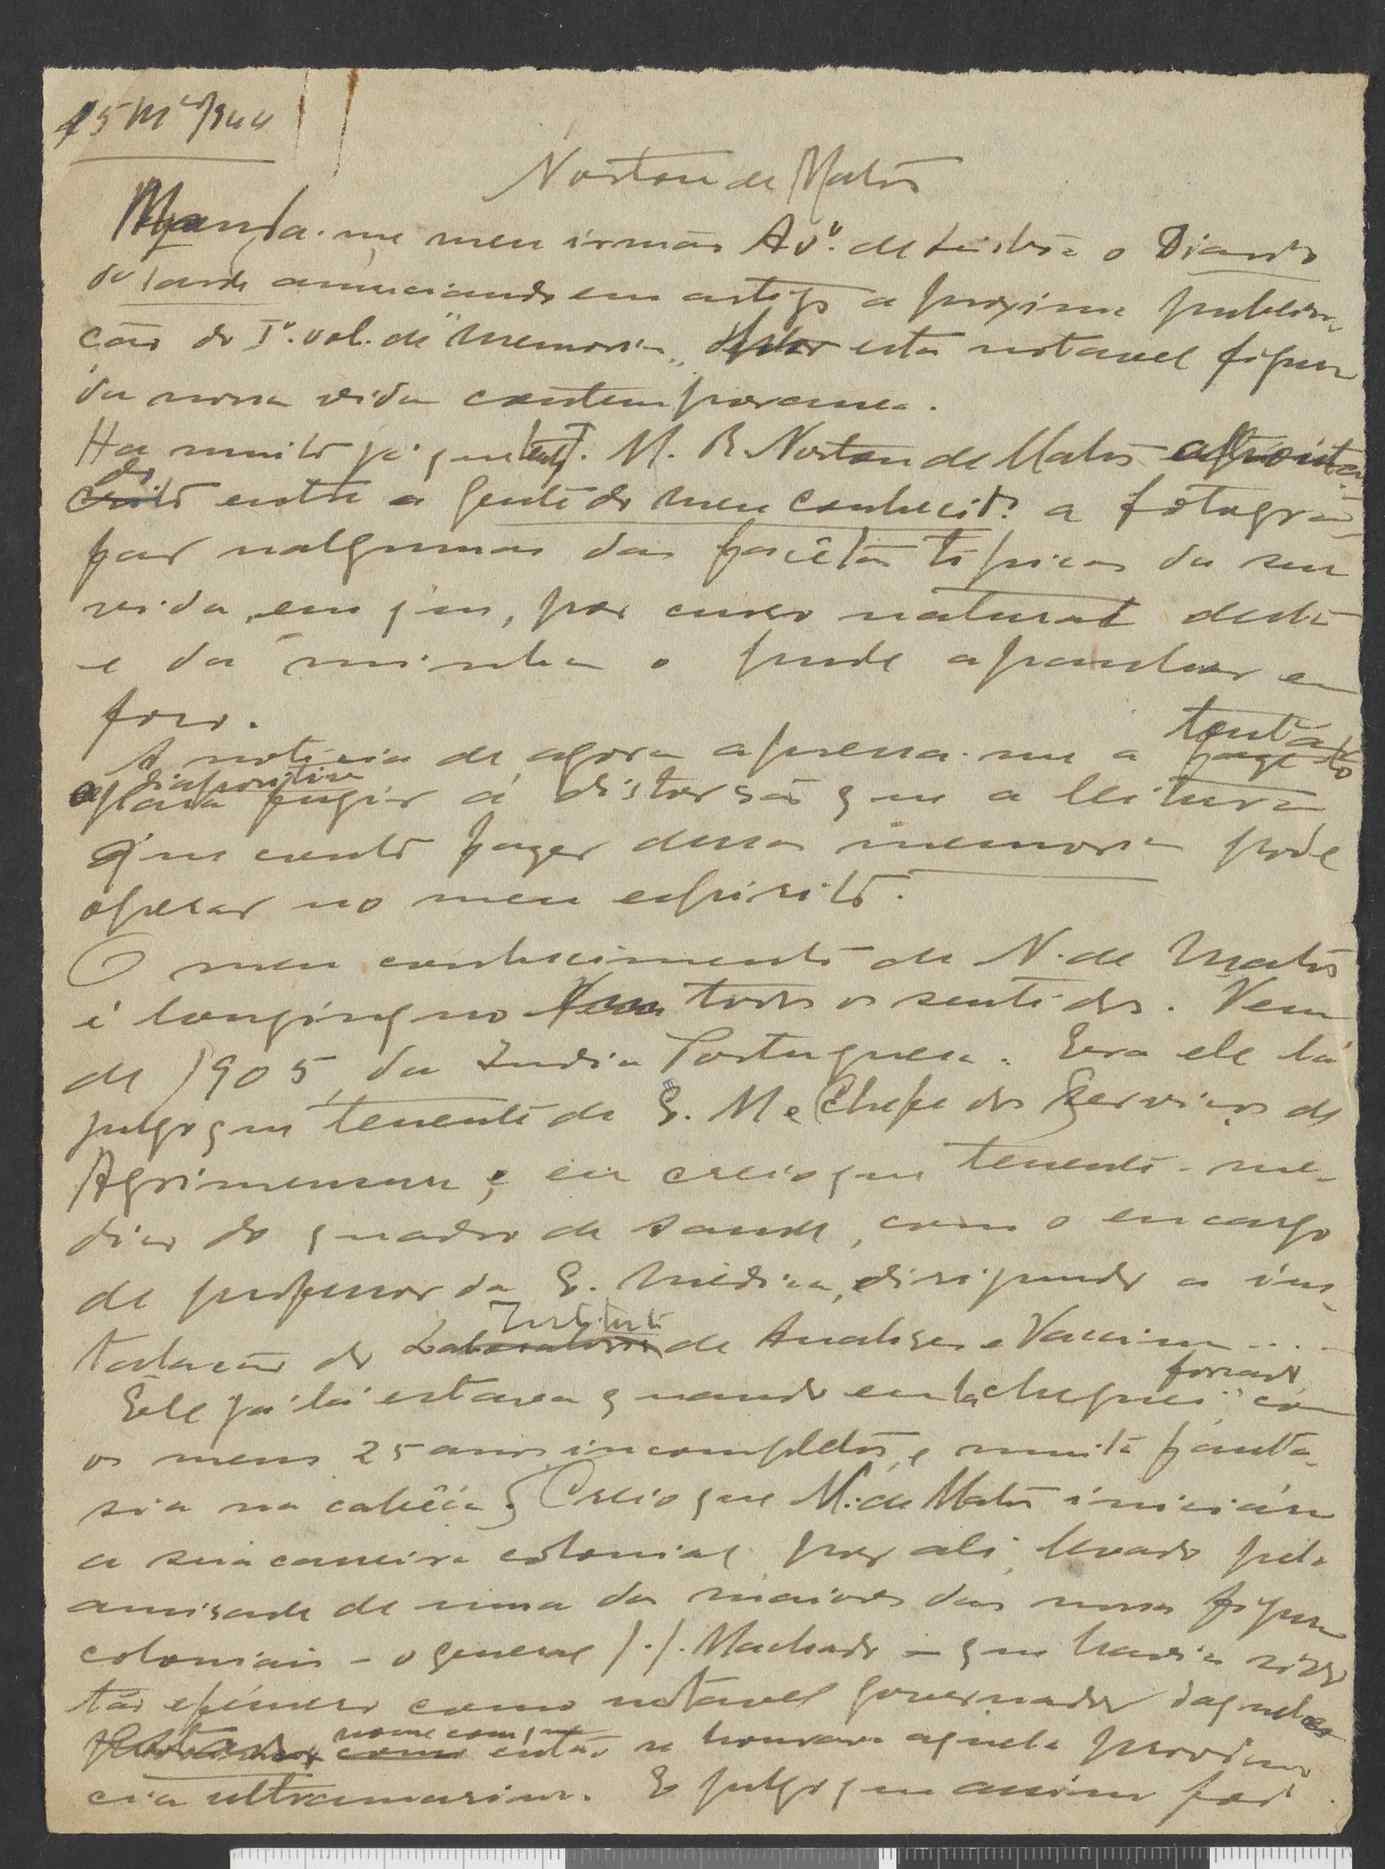 15 M ço/944
Norton de Matos
Manda-me meu irmão Adº. de Lisbôa o Diario
de Lisboa anunciando em artigo a proxima publica-
ção do Iº. vol. de "Memorias" desta notavel figura
da nossa vida contemporanea.
Ha muito já que J. M. R. Norton de Matos
do entre a gente do meu conhecitº. a fotogra-
far nalgumas das facêtas tipicas da sua
vida, em que, por curso natural desta
e da minha o pude apanhar em
foco.
A noticia de agora apressa-me a tenta
diapositivo para fugir á distorsão que a leitura
que conto fazer dessas memorias pode
operar no meu espirito.
O meu conhecimento de N. de Matos
é longinquo em todos os sentidos. Vem
de 1905, da India Portuguesa. Era ele lá
julgo que tenente de E. M. e Chefe dos Serviços de
Agrimensura; eu creio que tenente-me-
dico do quadro de saude, com o encargo
de professor da E. Médica, dirigindo a ins-
talação do Laboratorio Instituto de Analises e Vaccina....
Êle já lá estava quando eu lá cheguei forrado com
os meus 25 anos incompletos, e muita fanta-
sia na cabêça. Creio que N. de Matos iniciára
a sua carreira colonial por ali, levado pela
amisade de uma das maiores das nossas figuras
coloniais - o general J. J. Machado - que havia sido
tão efémero como notavel governador daquele
nome com que então se honrava aquela provin-
cia ultramarina. E julgo que assim foi.